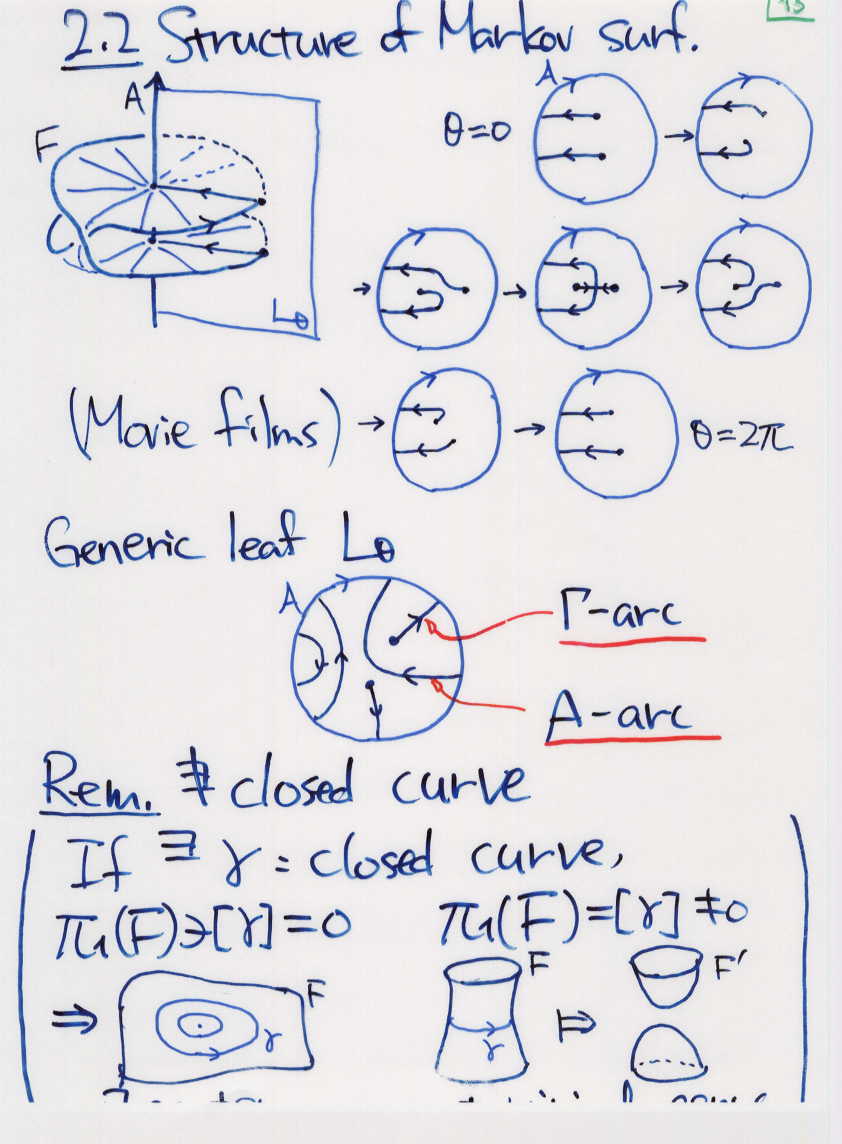 13
2.2 Structure of Markov surf.
A
F
C
Lθ
θ=0
A
(Movie films)
θ=2π
Generic leaf Lθ
A
Γ-arc
A-arc
Rem. ∄ closed curve
If ∃ γ = closed curve,
π₁(F)∋[γ]=0 π₁(F)=[γ]≠0
⇒ F γ F γ ⇒ F'